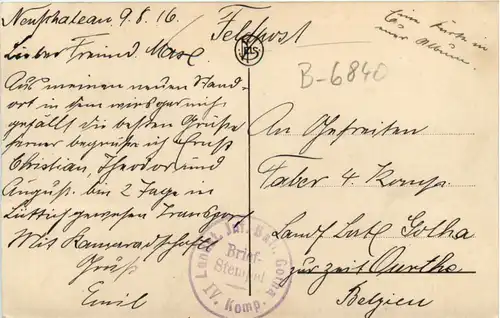 Neufchateau 9.8.16.
Feldpost
Lieber Freund Maxe.
Aus meinem neuen Stand-
ort in dem wirs gar nicht
gefällt die besten Grüße
ferner begrüße ich Ernst
Christian, Theodor und
August. bin 2 Tage in
Lüttich gewesen Transport
Mit Kameradschaftl.
Gruß
Emil
Eine Karte in
Album.
B-6840
An Gefreiten
Faber 4. Komp.
Landst. Batl Gotha
zur Zeit Ourthe
Belgien
Landst. Inf. Batl. Gotha
Brief-
Stempel
IV. Komp.